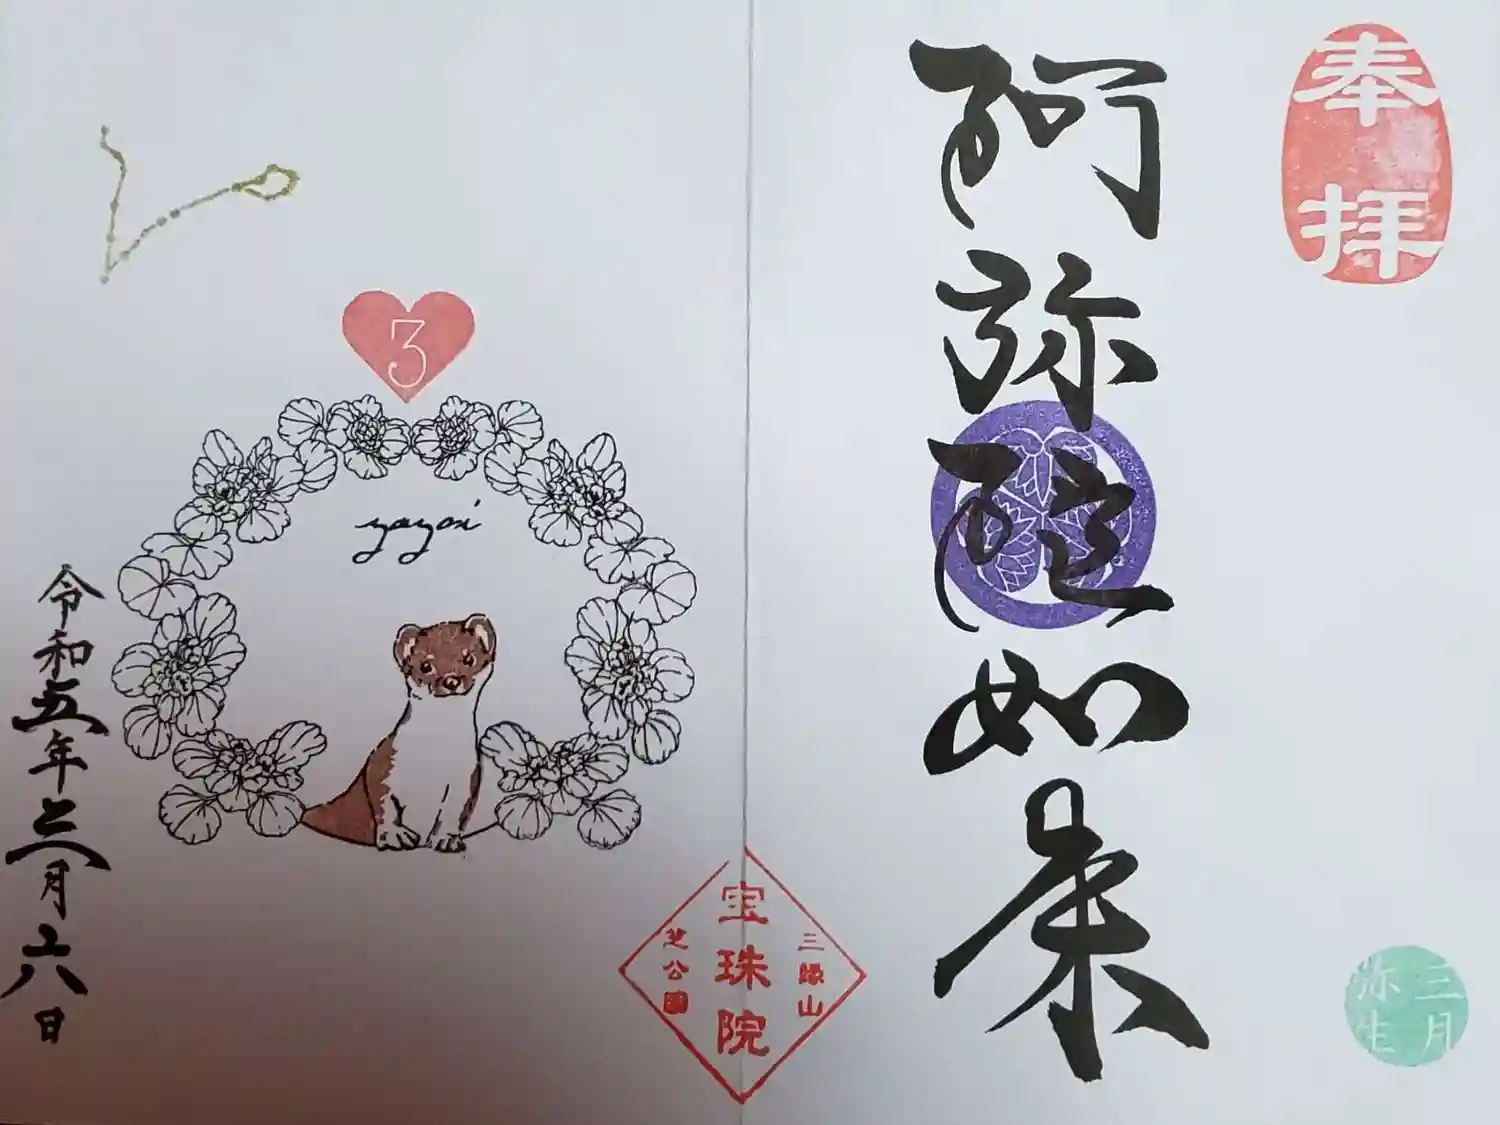 奉拝
阿弥陀如来
三月
弥生
三縁山
宝珠院
芝公園
3
yayoi
令和五年三月六日